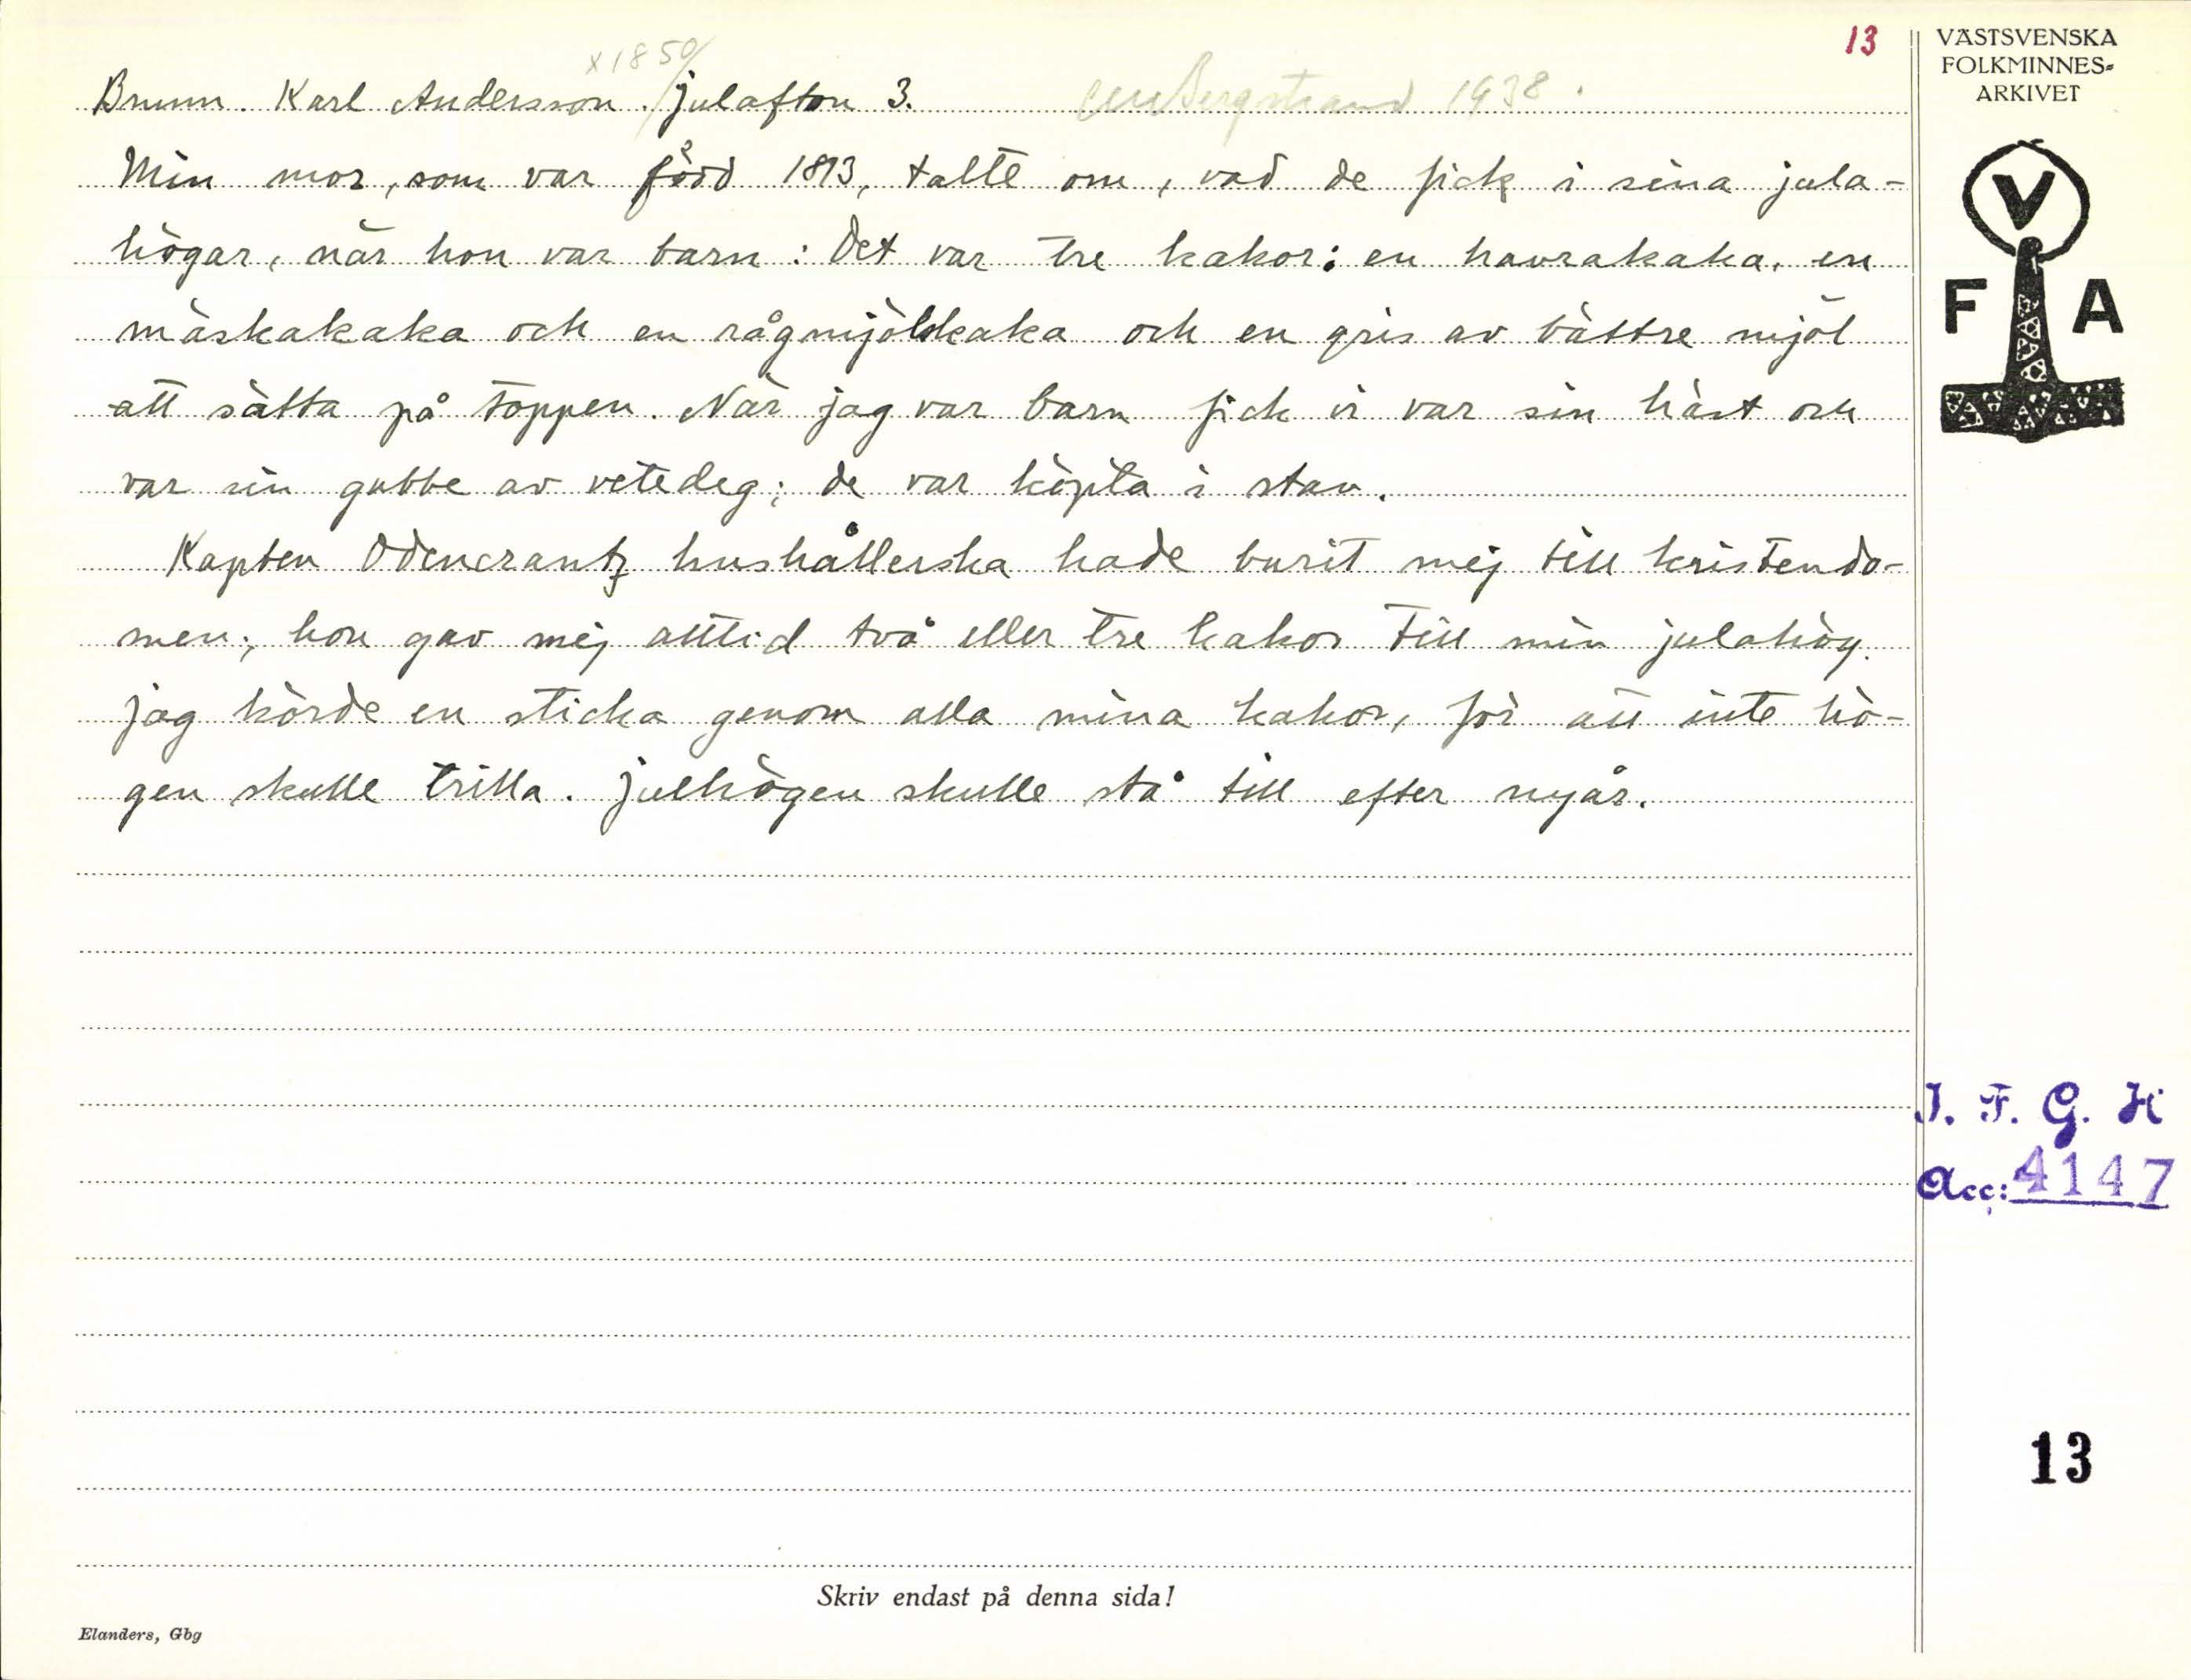 13
x 1850
Brunn. Karl Andersson. Julafton 3. CM Bergstrand 1938.
Min mor, som var född 1813, talte om, vad de fick i sina jula-
högar, när hon var barn: Det var tre kakor: en havrakaka, en
mäskakaka och en rågmjölskaka och en gris av bättre mjöl
att sätta på toppen. När jag var barn fick vi var sin häst och
var sin gubbe av vetedeg; de var köpta i stan.
Kapten Odencrantz hushållerska hade burit mej till kristendo-
men; hon gav mej alltid två eller tre kakor till min julahög.
Jag körde en sticka genom alla mina kakor, för att inte hö-
gen skulle trilla. Julhögen skulle stå till efter nyår.
VÄSTSVENSKA
FOLKMINNES-
ARKIVET
V
F A
I. F. G. H
Acc: 4147
13
Skriv endast på denna sida!
Elanders, Gbg